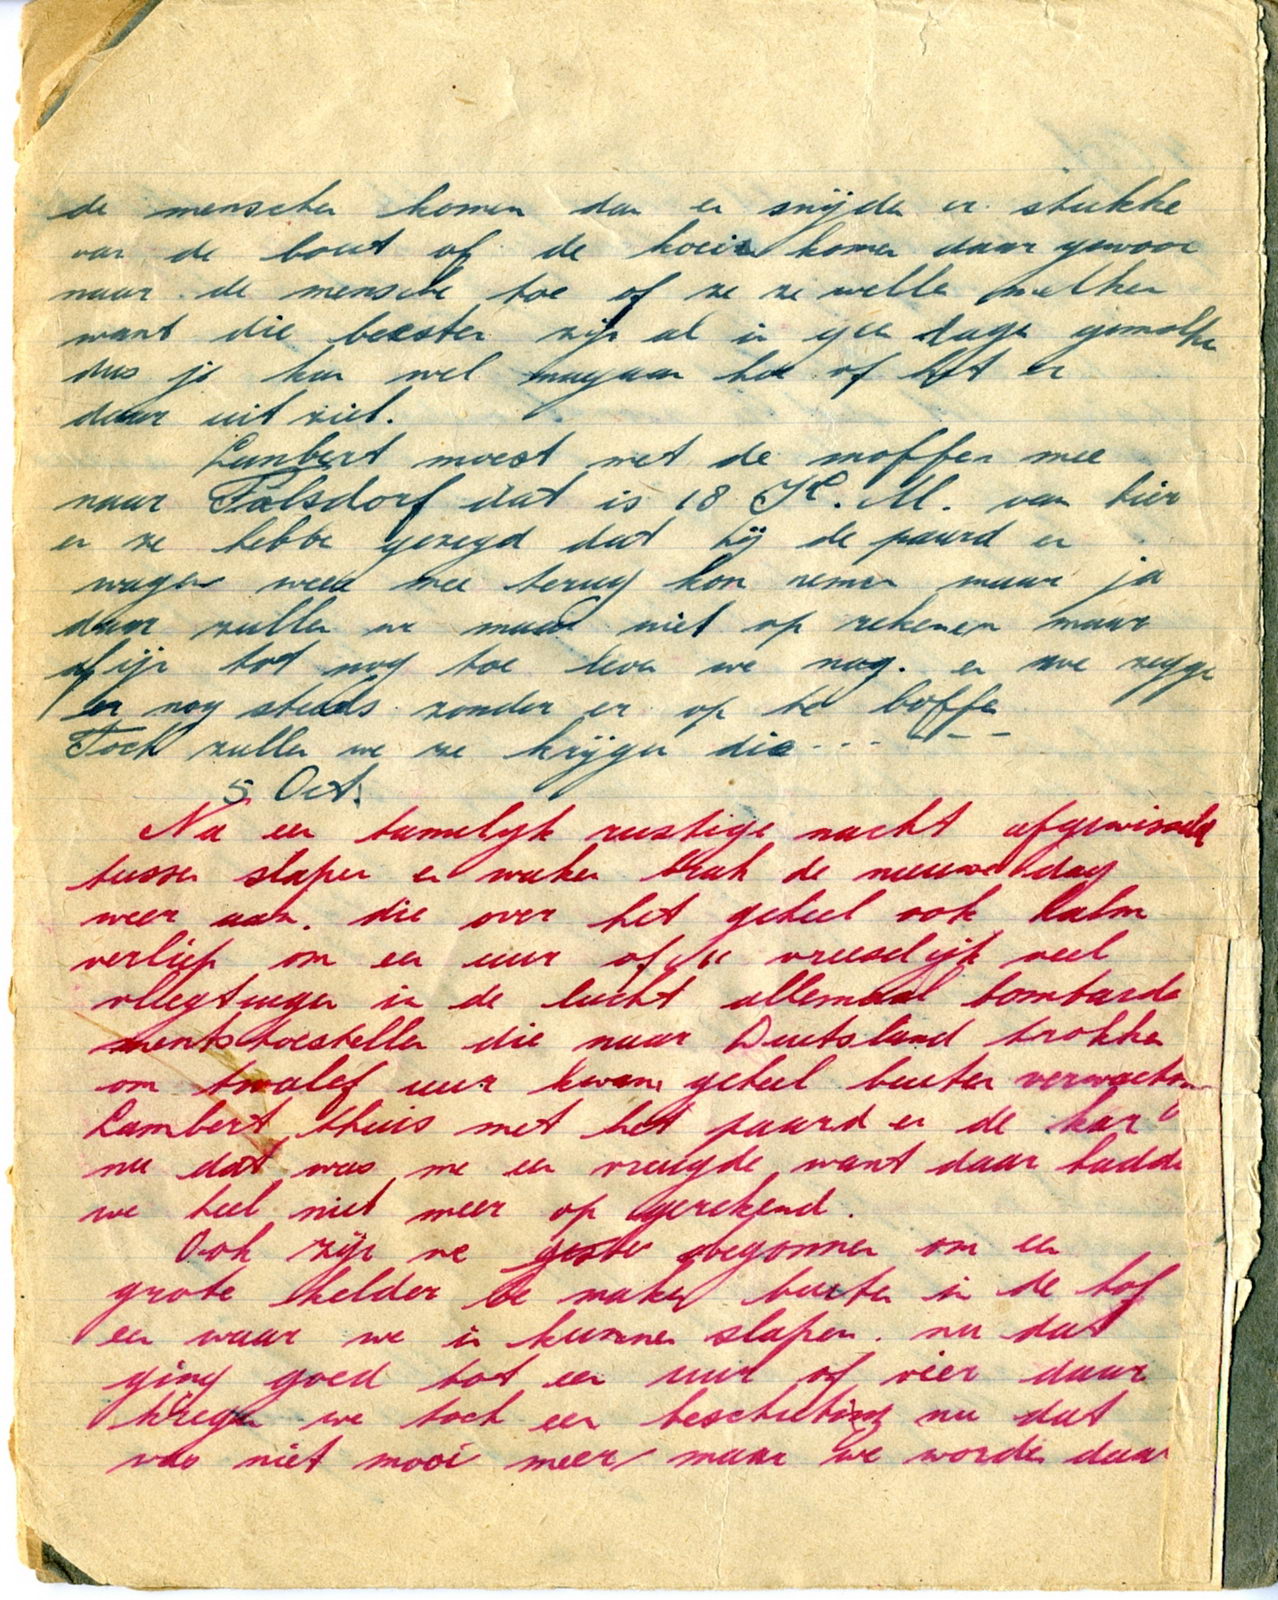 de mensche komen dan en snijden er stukke
van de bout of de koeie komen daar gewoon
naar de mensche toe of ze ze wille melken
want die beesten zijn al in geen dage gemolke
dus je kan wel nagaan hoe of het er
daar uit ziet.
Lambert moest met de moffen mee
naar Palsdorf dat is 18 K.M. van hier
en ze hebbe gezegd dat hij de paard en
wagen weer mee terug kon nemen maar ja
daar zullen we maar niet op rekenen maar
fijn tot nog toe leven we nog. en we zegge
en nog steeds zonder er op te boffen
Toch zullen we ze krijgen die - - - - - -
5 Oct.
Na een tamelijk rustige nacht afgewisseld
tussen slapen en waken brak de nieuwe dag
weer aan. die over het geheel ook kalm
verliep om een uur of 11 vreeselijk veel
vliegtuigen in de lucht allemaal bombarde
mentstoestellen die naar Duitsland trokken
om twalef uur kwam geheel buiten verwachten
Lambert thuis met het paard en de kar
nu dat was me een vreugde want daar hadde
we heel niet meer op gerekend.
Ook zijn we gister begonnen om een
grote kelder te maken buiten in de hof
een waar we in kunnen slapen. nu dat
ging goed tot een uur of vier daar
kregen we toch een beschieting nu dat
was niet mooi meer maar we worden daar